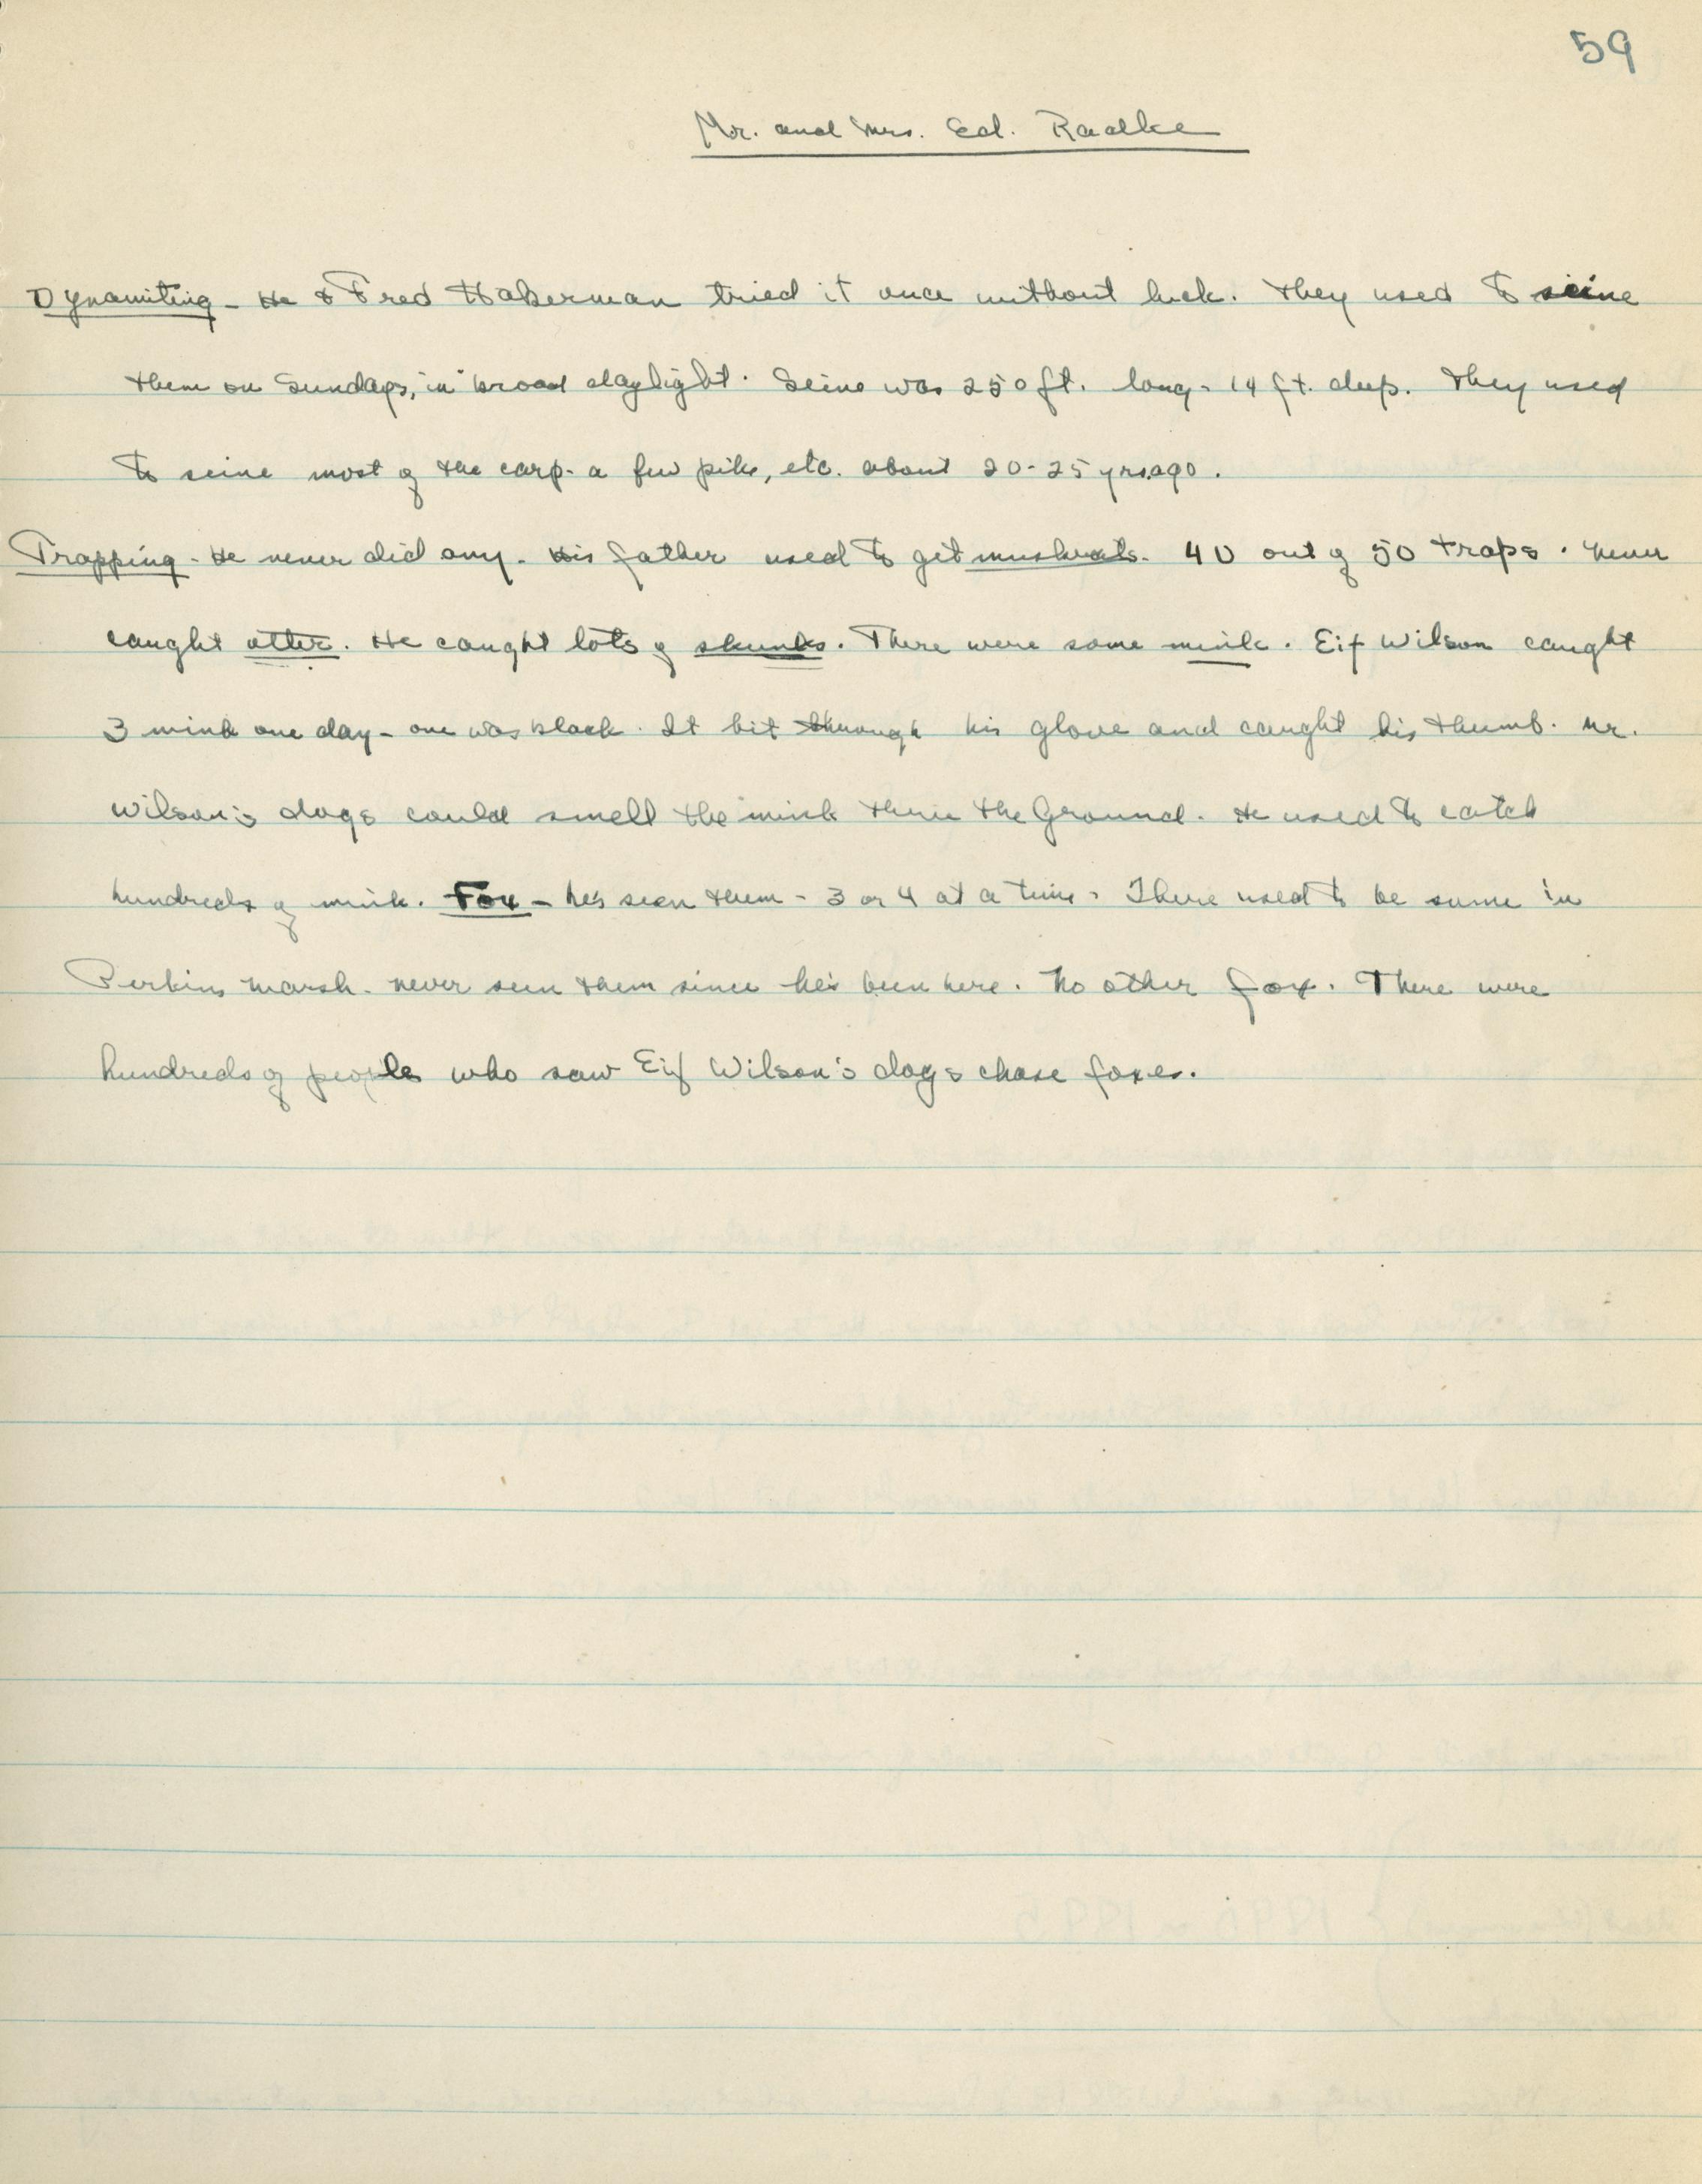 59
Mr. and Mrs. Ed. Radke
Dynamiting - He & Fred Haberman tried it once without luck. They used to seine
them on Sundays, in broad daylight. Seine was 250 ft. long - 14 ft. deep. They used
to seine most of the carp - a few pike, etc. about 20-25 yrs. ago.
Trapping - He never did any. His father used to get muskrats. 40 out of 50 traps. Never
caught otter. He caught lots of skunks. There were some mink. Eif Wilson caught
3 mink one day - one was black. It bit through his glove and caught his thumb. Mr.
Wilson's dogs could smell the mink thru the Ground. He used to catch
hundreds of mink. Fox - he's seen them - 3 or 4 at a time. There used to be some in
Perkins Marsh. never seen them since he's been here. No other fox. There were
hundreds of people who saw Eif Wilson's dogs chase foxes.